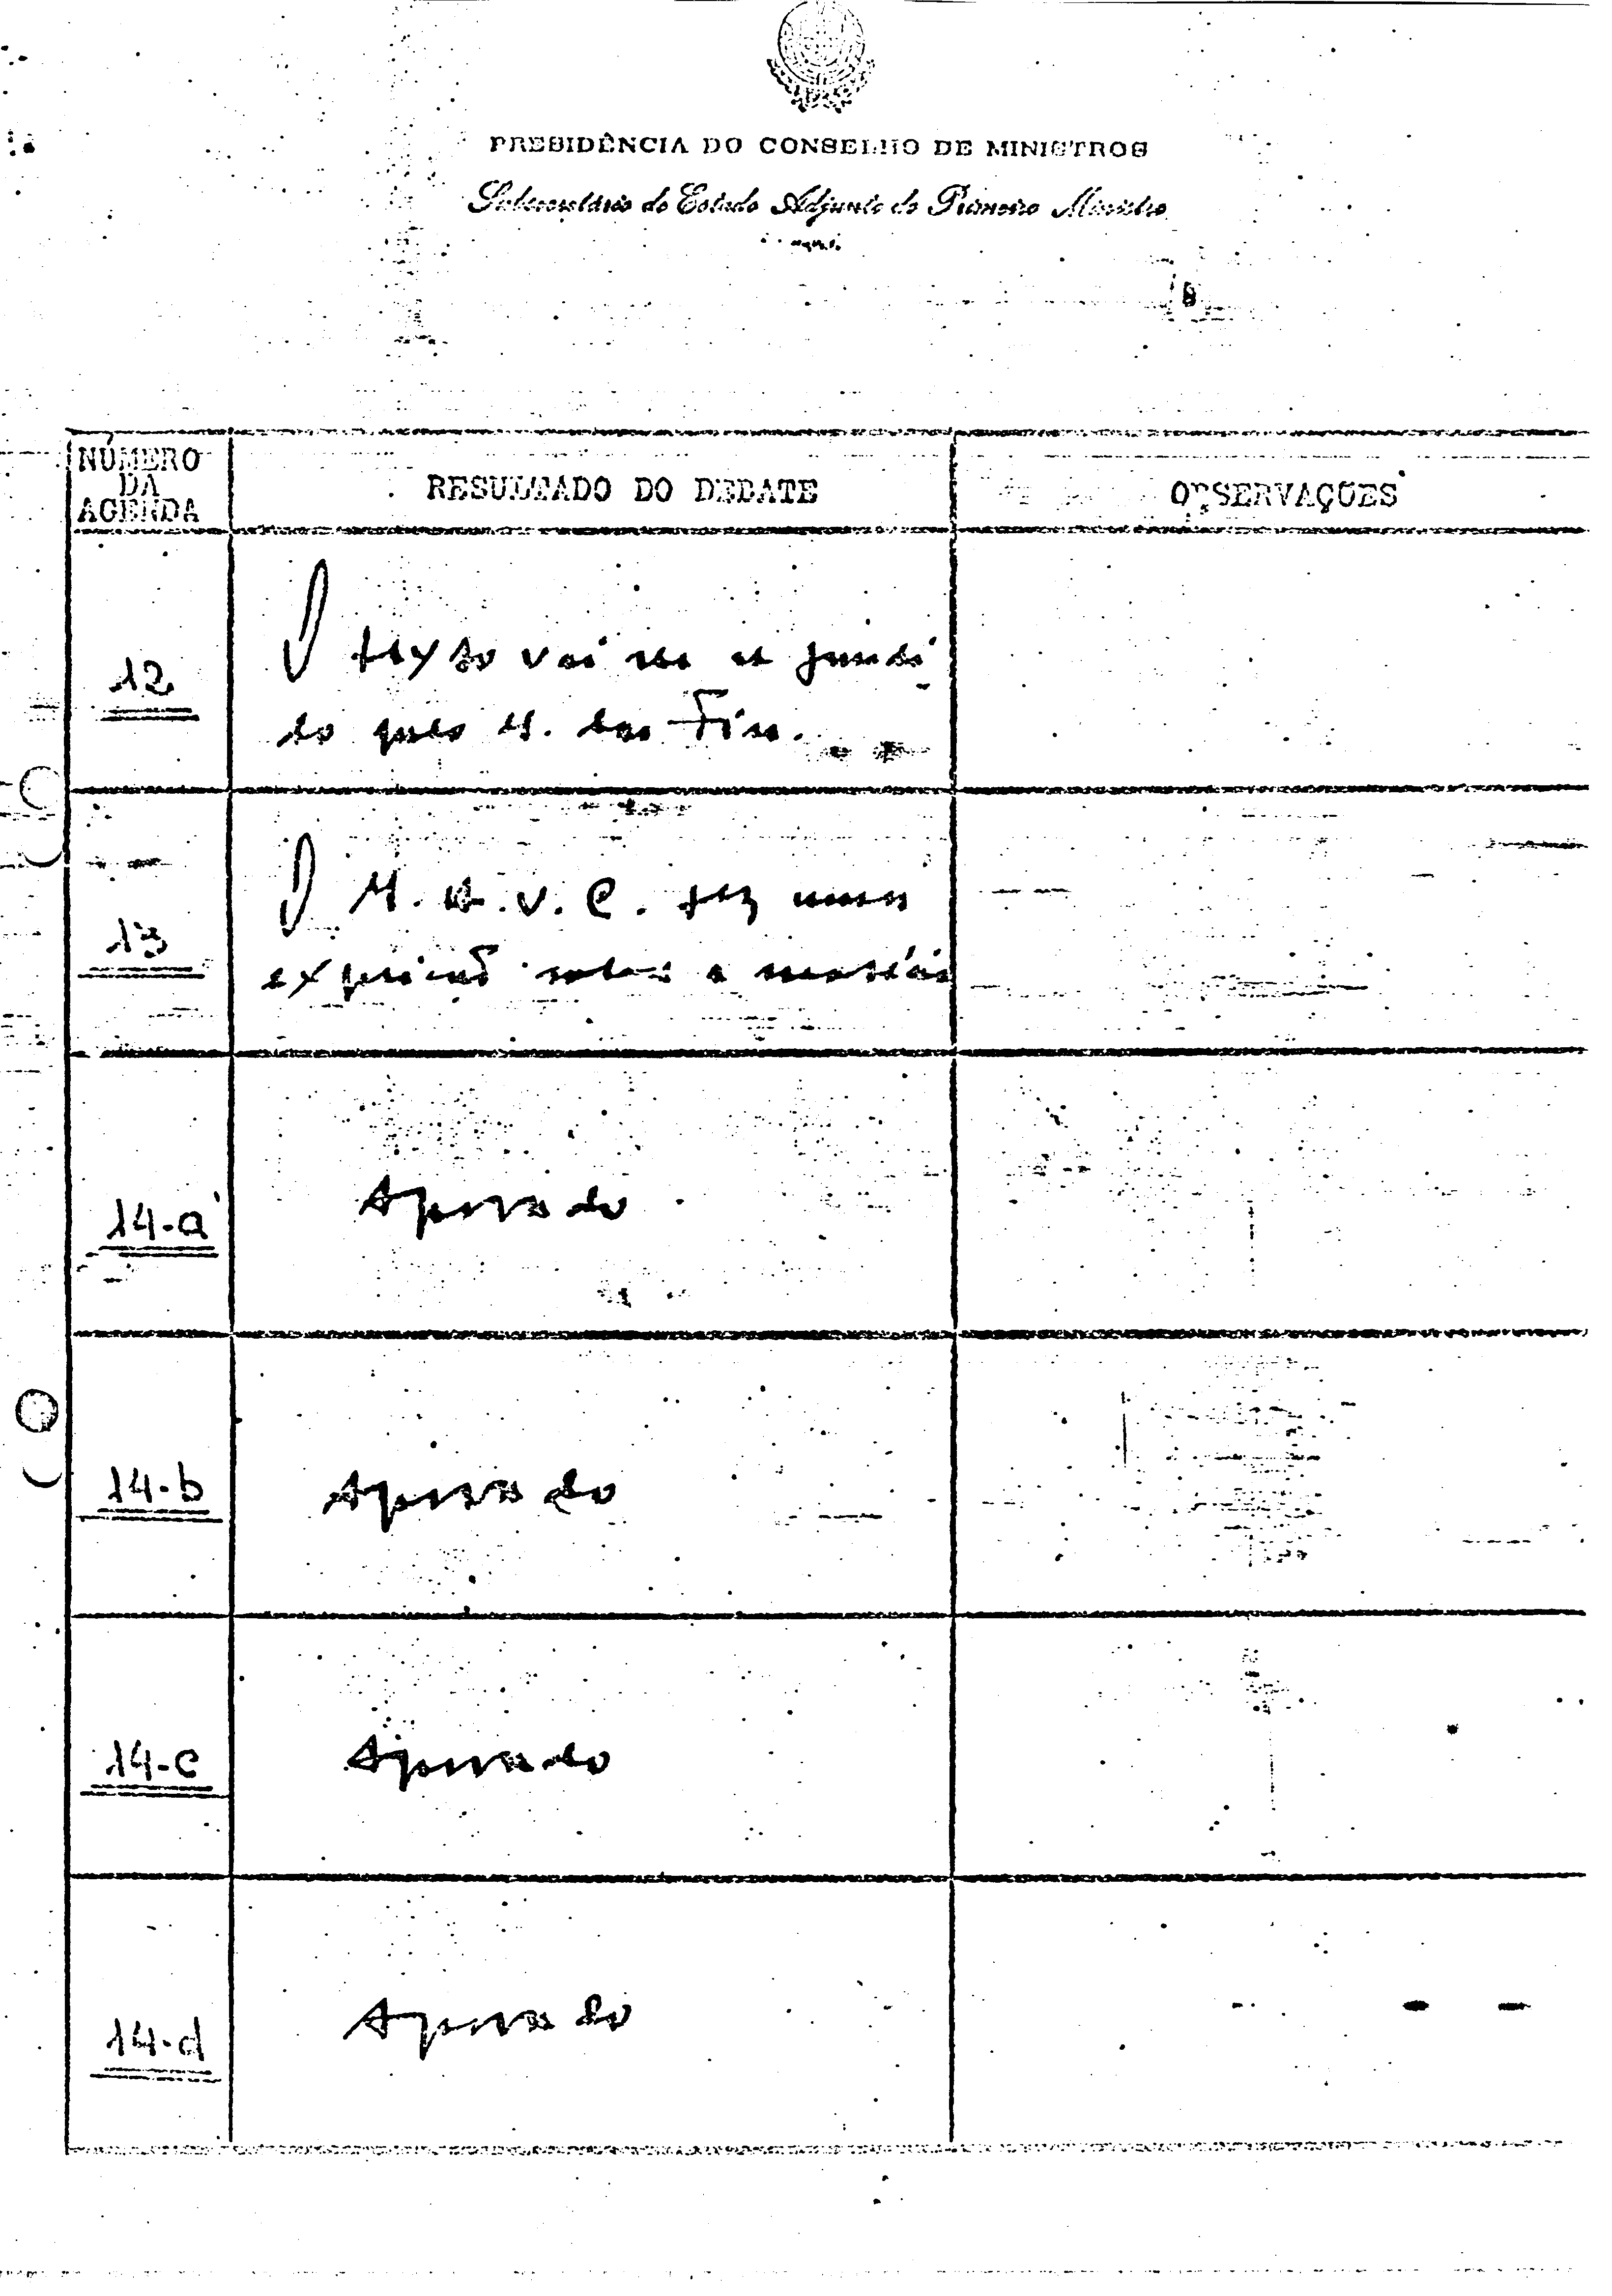 PRESIDÊNCIA DO CONSELHO DE MINISTROS
Subsecretário de Estado Adjunto do Primeiro Ministro
NÚMERO
DA
AGENDA
RESULTADO DO DEBATE
OBSERVAÇÕES
12
O texto vai ser
do pelo M. das Fin.
13
O M. fez uma
exposição sobre a matéria
14-a
Aprovado
14-b
Aprovado
14-c
Aprovado
14-d
Aprovado